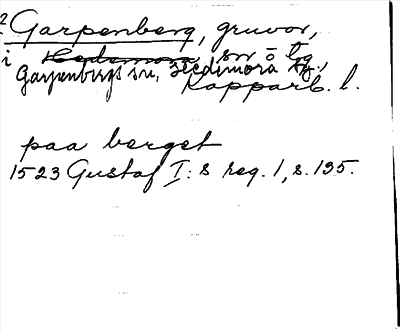 2 Garpenberg, gruvor,
i Hedemora sn o tg
Garpenbergs sn, Hedemora tg.,
Kopparb. l.
paa berget
1523 Gustaf I:s reg. 1, s. 135.